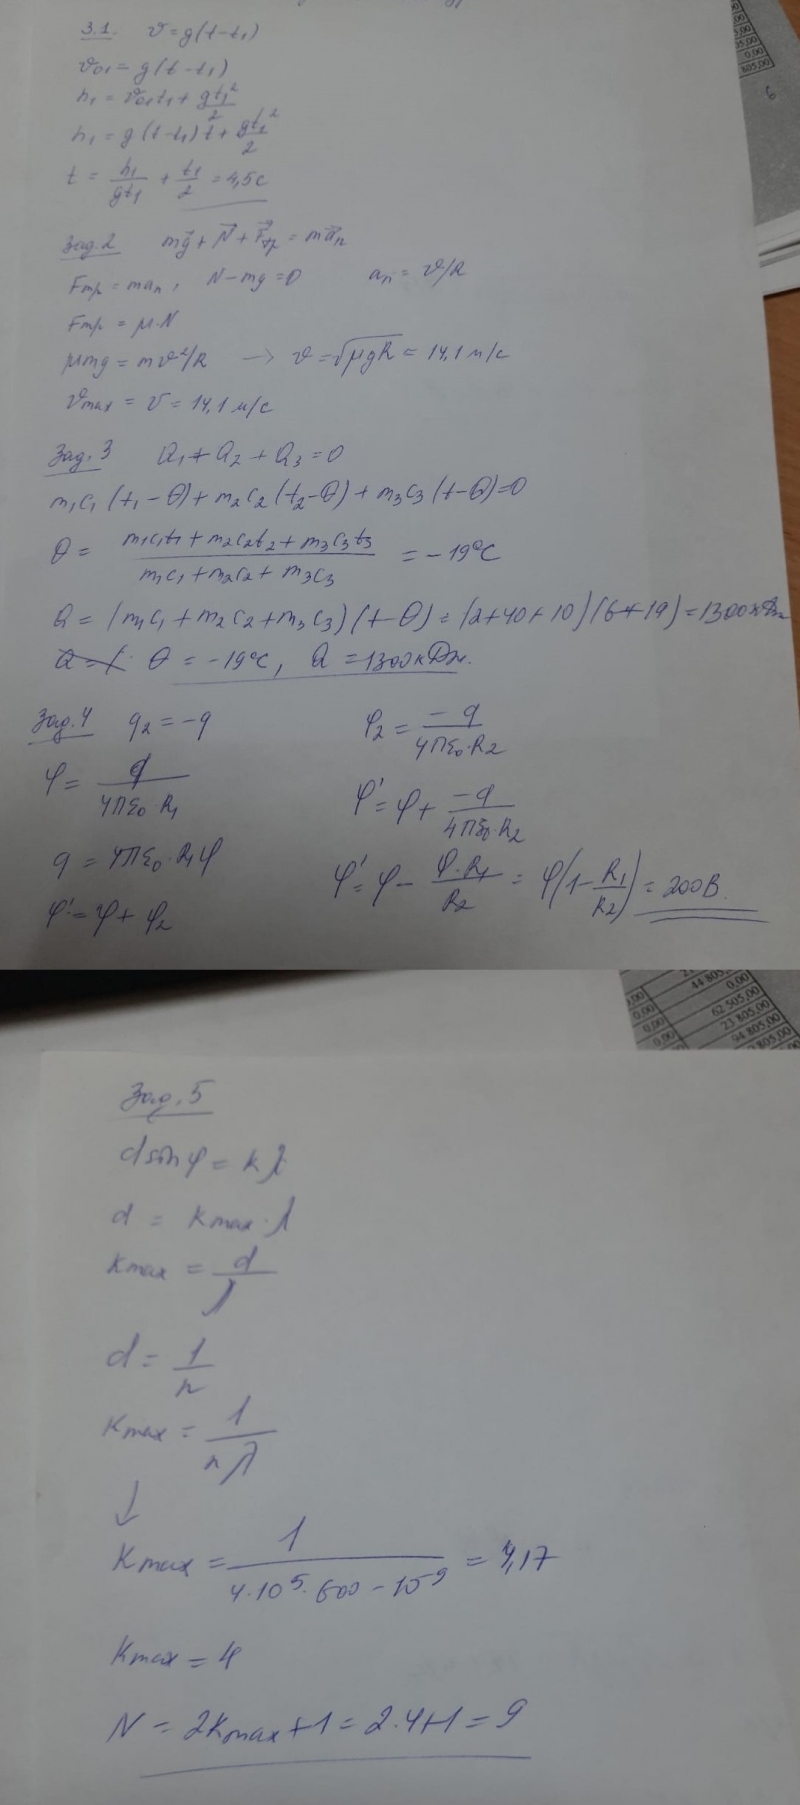 6
805,00
0,00
3.1. v = g(t-t₁)
v₀₁ = g(t-t₁)
h₁ = v₀₁t₁ + gt₁²/2
h₁ = g(t-t₁)t + gt₁²/2
t = h₁/gt₁ + t₁/2 = 4,5с
Зад.2 mg⃗ + N⃗ + F⃗тр = ma⃗n
Fтр = man, N-mg=0 an = v/R
Fтр = μ·N
μmg = mv²/R → v = √μgR = 14,1 м/с
vmax = v = 14,1 м/с
Зад.3 Q₁ + Q₂ + Q₃ = 0
m₁c₁(t₁-θ) + m₂c₂(t₂-θ) + m₃c₃(t-θ)=0
θ = (m₁c₁t₁ + m₂c₂t₂ + m₃c₃t₃)/(m₁c₁ + m₂c₂ + m₃c₃) = -19°C
Q = (m₁c₁ + m₂c₂ + m₃c₃)(t-θ) = (2+40+10)(6+19) = 1300кДж
θ = -19°C, Q = 1300кДж.
Зад.4 q₂ = -q φ₂ = -q/4πε₀·R₂
φ = q/4πε₀·R₁ φ' = φ + -q/4πε₀·R₂
q = 4πε₀·R₁φ φ' = φ - φ·R₁/R₂ = φ(1-R₁/R₂) = 200В.
φ' = φ + φ₂
44 805,00
0,00
62 505,00
0,00
23 805,00
0,00
94 805,00
0,00
805,00
Зад.5
d sin φ = kλ
d = kmax·λ
kmax = d/λ
d = 1/n
kmax = 1/nλ
↓
kmax = 1/(4·10⁵·600-10⁻⁹) = 4,17
kmax = 4
N = 2kmax+1 = 2·4+1 = 9